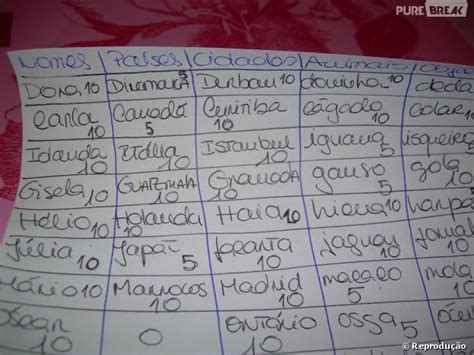 PUREBREAK
Nomes Países Cidades Animais
Dora 10 Dinamarca 5 Durban 10 doninha 10 dedal
Carla 10 Canadá 5 Curitiba 10 cágado 10 colar
Iolanda 10 Itália 10 Istambul 10 iguana 5 isqueiro
Gisela 10 Guatemala 10 Granada 10 ganso 5 gola
Hélio 10 Holanda 10 Haia 10 hiena 10 harpa
Júlia 10 Japão 5 10 jaguar 10 jornal
Mário 10 Marrocos 10 Madrid 10 macaco 5 mola
Oscar 10 0 Ontário 10 ossa 5
© Reprodução